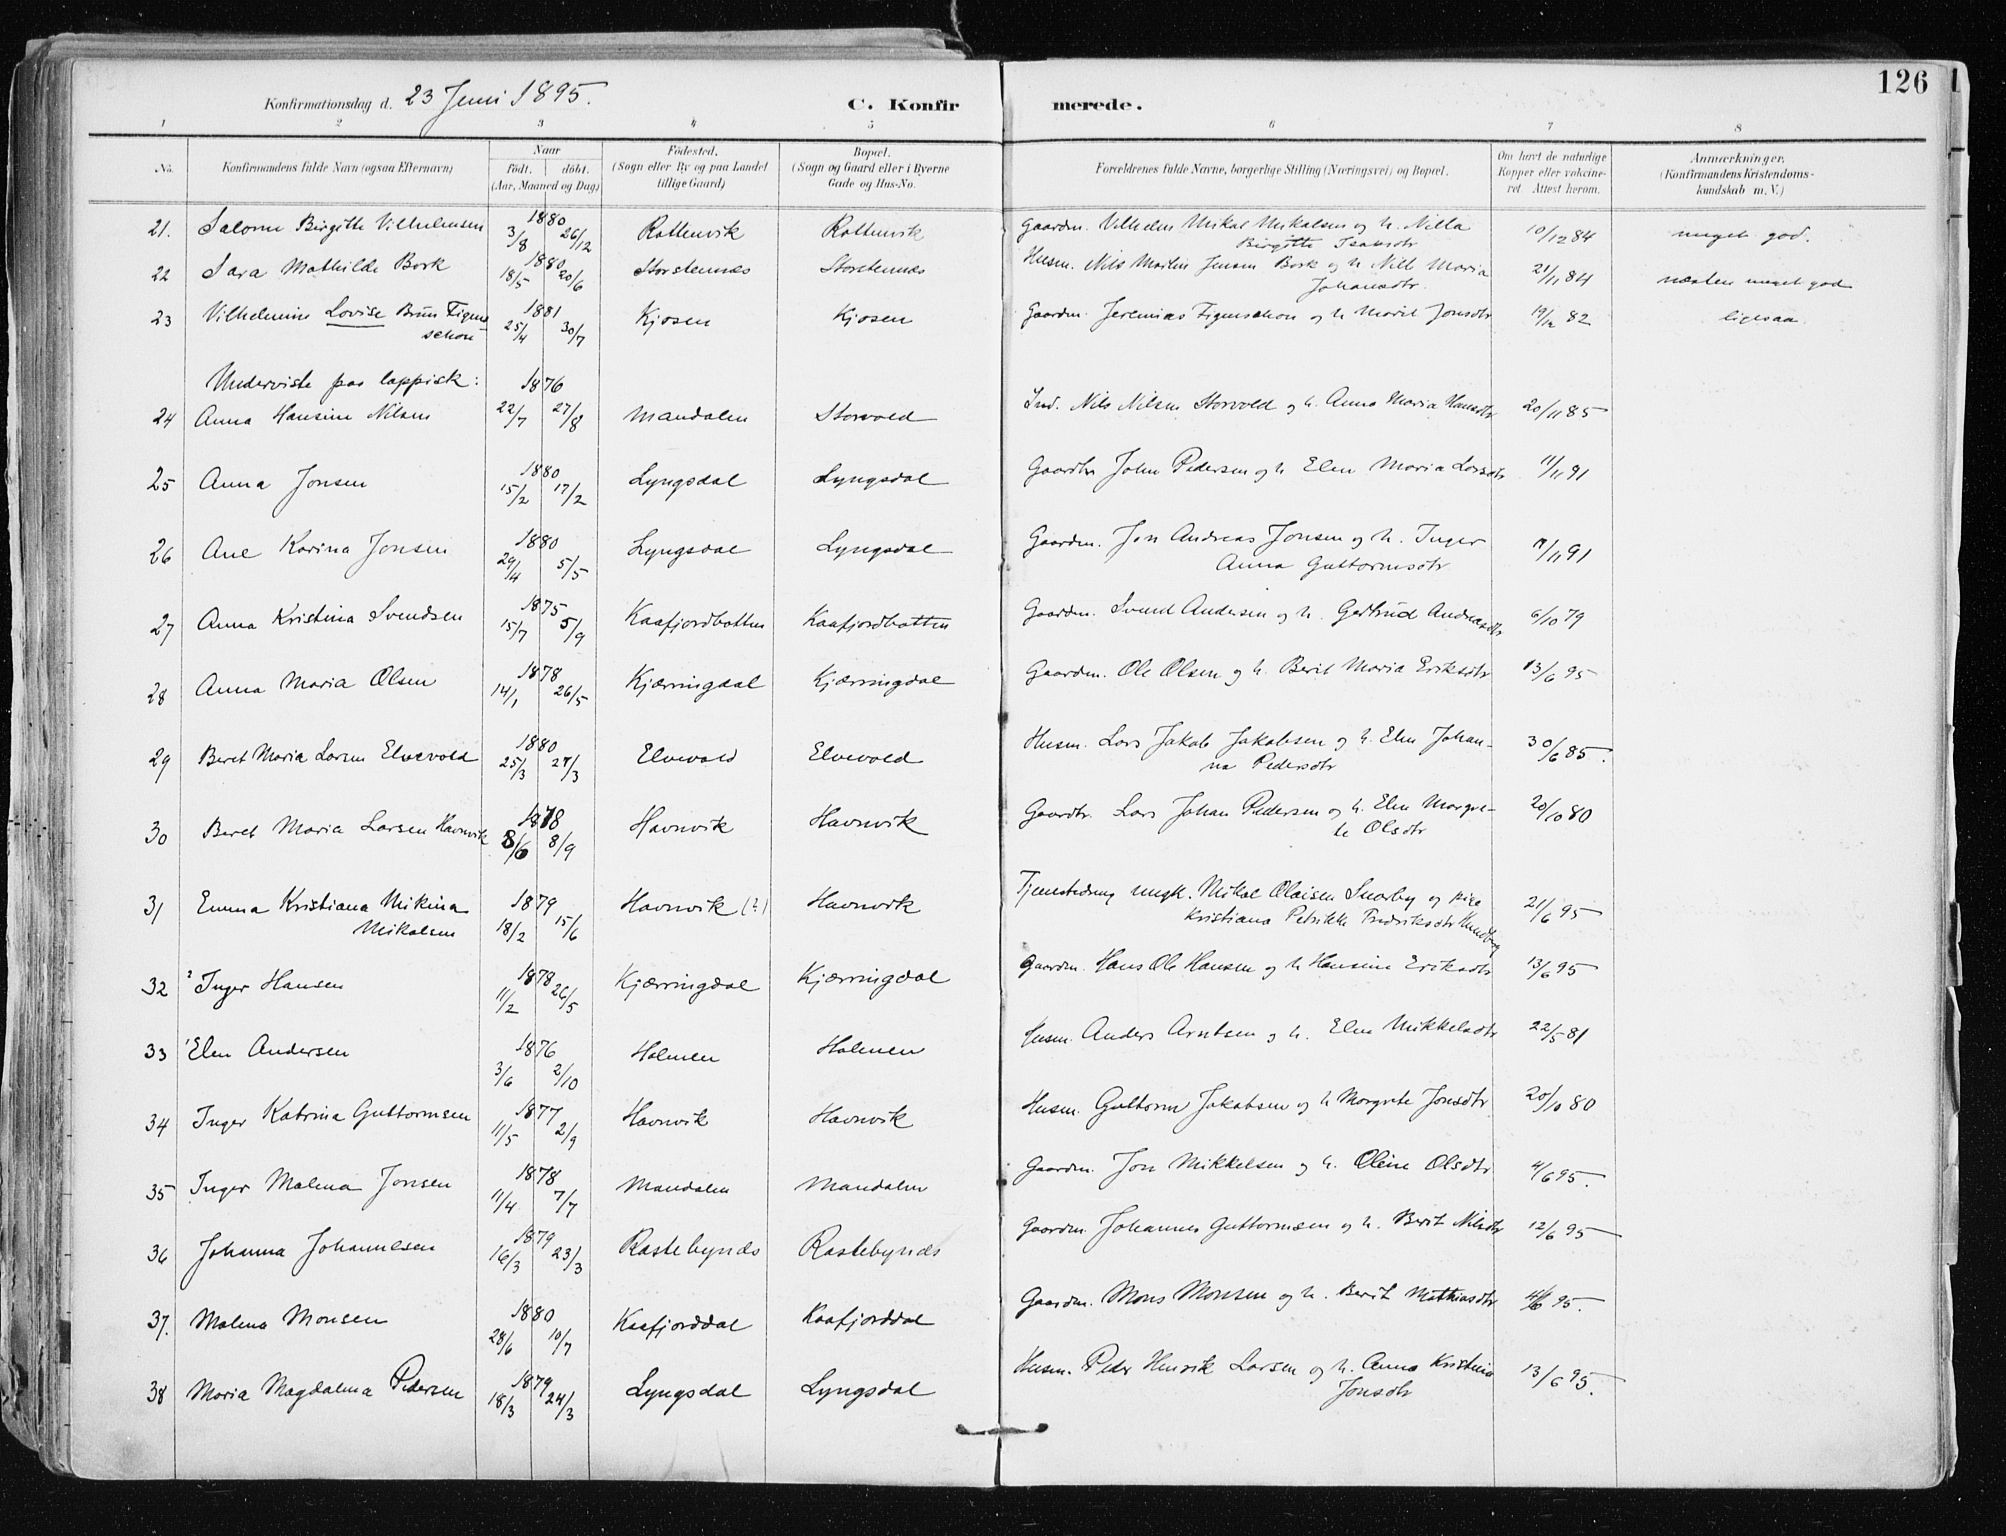 126
Konfirmationsdag d. 23 Juni 1895. C. Konfirmerede.
1 2 3 4 5 6 7 8
No. Konfirmandens fulde Navn (ogsaa Efternavn) Naar födt. döbt. (Aar, Maaned og Dag) Födested. (Sogn eller By og paa Landet tillige Gaard) Bopæl. (Sogn og Gaard eller i Byerne Gade og Hus-No. Forældrenes fulde Navne, borgerlige Stilling (Næringsvei) og Bopæl. Om havt de naturlige Kopper eller vakcineret. Attest herom. Anmærkninger. (Konfirmandens Kristendomskundskab m. V.)
21. Salome Birgitte Vilhelmsen 1880 3/8 26/12 Rottenvik Rottenvik Gaardm. Vilhelm Mikal Mikalsen og h. Nilla Birgitte Isaksdtr 10/12 84 meget god.
22 Sara Mathilde Bork 1880 18/5 20/6 Storstennes Storstennes Husm. Nils Martin Jensen Bork og h. Nill Maria Johansdtr. 21/11 84 næsten meget god
23 Vilhelmine Lovise Brun Figenschou 1881 25/4 30/7 Kjosen Kjosen Gaardm. Jeremias Figenschou og h. Marit Jonsdtr 19/12 82 ligesaa
Underviste paa lappisk:
24 Anna Hansine Nilsen 1876 22/7 27/8 Mandalen Storvold Ind. Nils Nilsen Storvold og h. Anna Maria Hansdtr 20/11 85
25 Anna Jonsen 1880 15/2 17/2 Lyngsdal Lyngsdal Gaardbr John Pedersen og h. Elen Maria Larsdtr 11/11 91
26 Ane Karina Jonsen 1880 29/4 5/5 Lyngsdal Lyngsdal Gaardm. Jon Andreas Jonsen og h. Inger Anna Guttormsdtr /11 91
27 Anna Kristina Svendsen 1875 15/7 5/9 Kaafjordbotten Kaafjordbotten Gaardm. Svend Andersen og h. Gertrud Andreasdtr 6/10 79
28 Anna Maria Olsen 1878 14/1 26/5 Kjærringdal Kjærringdal Gaardm. Ole Olsen og h. Berit Maria Eriksdtr 13/6 95
29 Beret Maria Larsen Elvevold 1880 25/3 27/3 Elvevold Elvevold Husm. Lars Jakob Jakobsen og h. Elen Johanna Pedersdtr 30/6 85.
30 Beret Maria Larsen Havnvik 1878 8/6 8/9 Havnvik Havnvik Gaardbr. Lars Johan Pedersen og h. Elen Margrete Olsdtr 20/10 80
31 Emma Kristiana Mikina Mikalsen 1879 18/2 15/6 Havnvik (?) Havnvik Tjenestedreng ungk. Mikal Olaisen Snarby og pige Kristiana Petrikke Fredriksdtr 21/6 95
32 2 Inger Hansen 1878 11/2 26/5 Kjærringdal Kjærringdal Gaardm. Hans Ole Hansen og h Hansine Eriksdtr 13/6 95
33 1 Elen Andersen 1876 3/6 2/10 Holmen Holmen Husm. Anders Arntsen og h. Elen Mikkelsdtr 22/5 81
34 Inger Katrina Guttormsen 1877 11/5 2/9 Havnvik Havnvik Husm. Guttorm Jakobsen og h Margrete Jonsdtr 20/10 80
35 Inger Malena Jonsen 1878 11/4 7/7 Mandalen Mandalen Gaardm. Jon Mikkelsen og h. Oline Olsdtr 4/6 95.
36 Johanna Johannesen 1879 16/3 23/3 Rastebynes Rastebynes Gaardm. Johannes Guttormsen og h. Berit Nilsdtr 12/6 95
37. Malena Monsen 1880 28/6 10/7 Kaafjorddal Kaafjorddal Gaardm. Mons Monsen og h. Berit Mathiasdtr /6 95.
38 Maria Magdalena Pedersen 1879 18/3 24/3 Lyngsdal Lyngsdal Husm. Peder Henrik Larsen og h. Anna Kristina Jonsdtr 13/6 95.